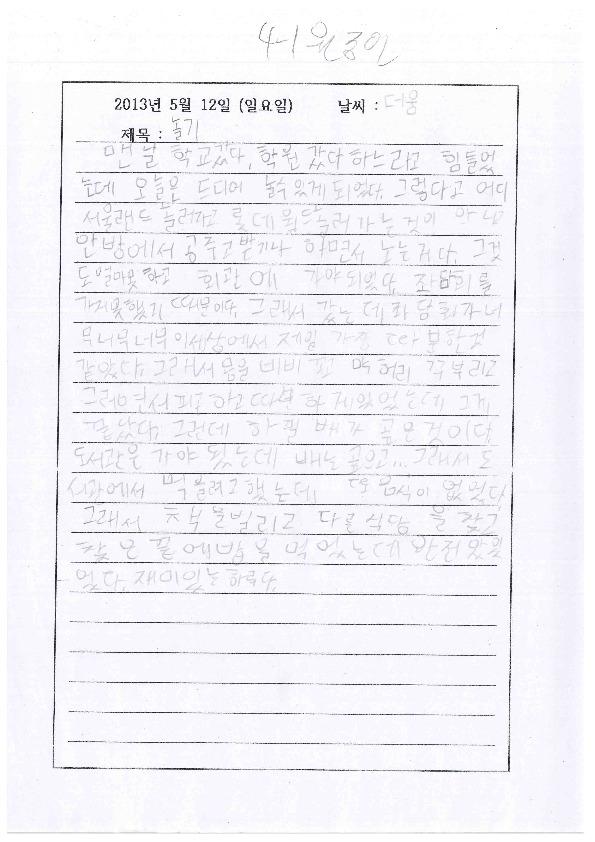 4-1 원종인
2013년 5월 12일 (일요일) 날씨 : 더움
제목 : 놀기
맨날 학교갔다, 학원 갔다 하느라고 힘들었
는데 오늘은 드디어 놀수있게 되었다. 그렇다고 어디
서울랜드 놀러가고 롯데월드놀러가는것이 아니고
안방에서 공주고받기나 하면서 노는거다. 그것
도 얼마못하고 회관에 가야되었다. 좌담회를
가지못했기 때문이다. 그래서 갔는데 좌담회가 너
무너무너무 이세상에서 제일 가장 따분한것
같았다. 그래서 몸을 비비 꼬 며 허리 구부리고
그러면서 피곤하고 따분하게있었는데 그게
끝났다. 그런데 하필 배가 고픈것이다
도서관을 가야 됬는데 배는 고프고... 그래서 도
서관에서 먹을려고했는데, 음식이 없었다
그래서 책을빌리고 다른식당을 찾고
찾은 끝에밥을 먹었는데 맛있
었다. 재미있는하루다.